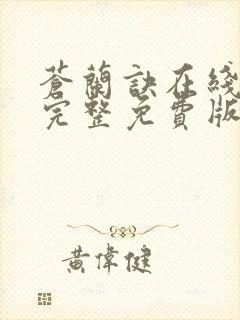 蒼蘭訣在綫
完整免費版
黃偉健